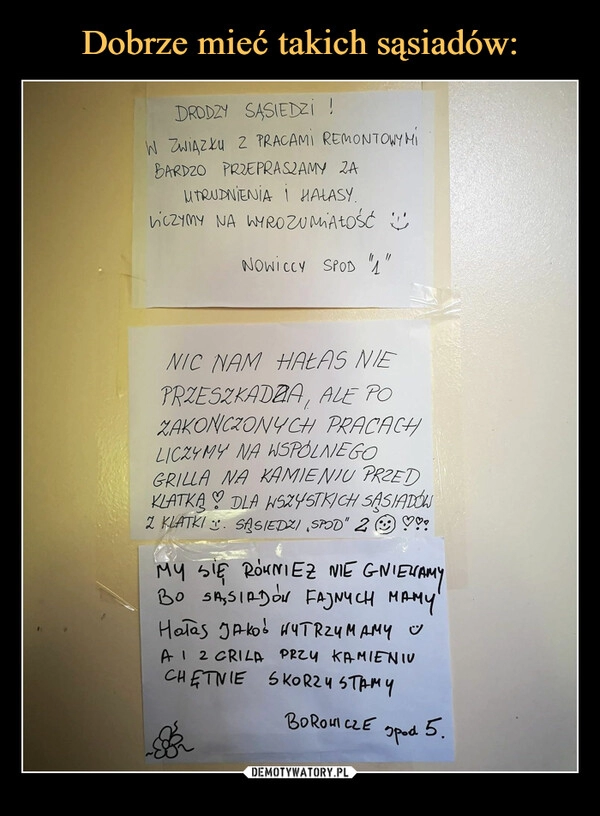 Dobrze mieć takich sąsiadów:
DRODZY SĄSIEDZI !
W ZWIĄZKU Z PRACAMI REMONTOWYMI
BARDZO PRZEPRASZAMY ZA
UTRUDNIENIA I HAŁASY.
LICZYMY NA WYROZUMIAŁOŚĆ
NOWICCY SPOD "1"
NIC NAM HAŁAS NIE
PRZESZKADZA, ALE PO
ZAKOŃCZONYCH PRACACH
LICZYMY NA WSPÓLNEGO
GRILLA NA KAMIENIU PRZED
KLATKĄ ♡ DLA WSZYSTKICH SĄSIADÓW
Z KLATKI. SĄSIEDZI „SPOD" 2 ☺ ♡♡
MY SIĘ RÓWNIEŻ NIE GNIEWAMY
BO SĄSIADÓW FAJNYCH MAMY
HAŁAS JAKOŚ WYTRZYMAMY
A I Z GRILA PRZY KAMIENIU
CHĘTNIE SKORZYSTAMY
BOROWICZE spod 5.
DEMOTYWATORY.PL